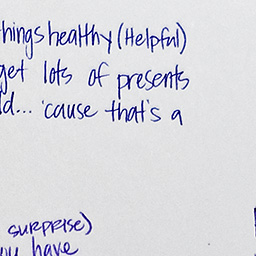 things healthy (Helpful)
get lots of presents
ld... 'cause that's a
surprise)
you have